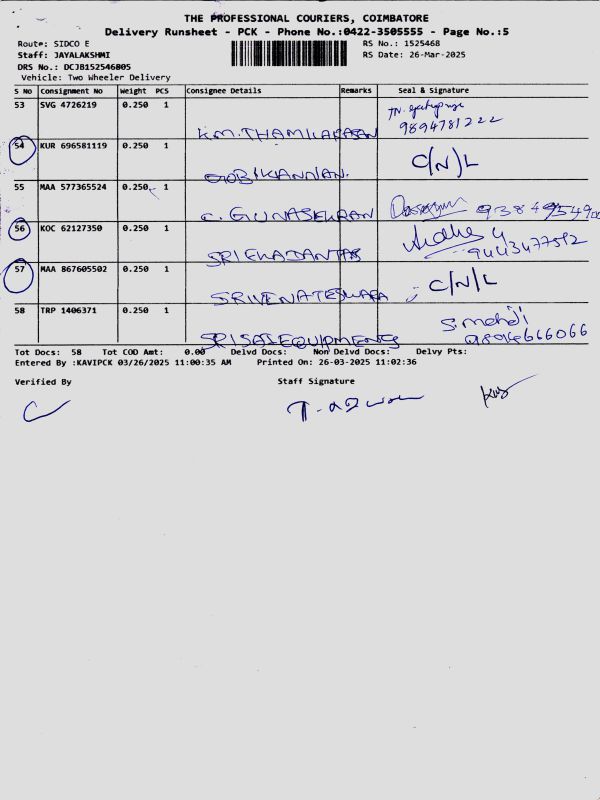 THE PROFESSIONAL COURIERS, COIMBATORE
Delivery Runsheet - PCK - Phone No.:0422-3505555 - Page No.:5
Route: SIDCO E RS No.: 1525468
Staff: JAYALAKSHMI RS Date: 26-Mar-2025
DRS No.: DCJB152546805
Vehicle: Two Wheeler Delivery
S NO Consignment No Weight PCS Consignee Details Remarks Seal & Signature
53 SVG 4726219 0.250 1 K.M. THAMILARASAN 9894781222
54 KUR 696581119 0.250 1 GOBIKANNAN. C/N/L
55 MAA 577365524 0.250 1 C. GUNASEKRAN
56 KOC 62127350 0.250 1 SRI EKADANTAS 9443477592
57 MAA 867605502 0.250 1 SRIVENATESWARA C/N/L
58 TRP 1406371 0.250 1 SRISAIEQUIPMENTS S. mehdi
Tot Docs: 58 Tot COD Amt: 0.00 Delvd Docs: Non Delvd Docs: Delvy Pts:
Entered By :KAVIPCK 03/26/2025 11:00:35 AM Printed On: 26-03-2025 11:02:36
Verified By Staff Signature